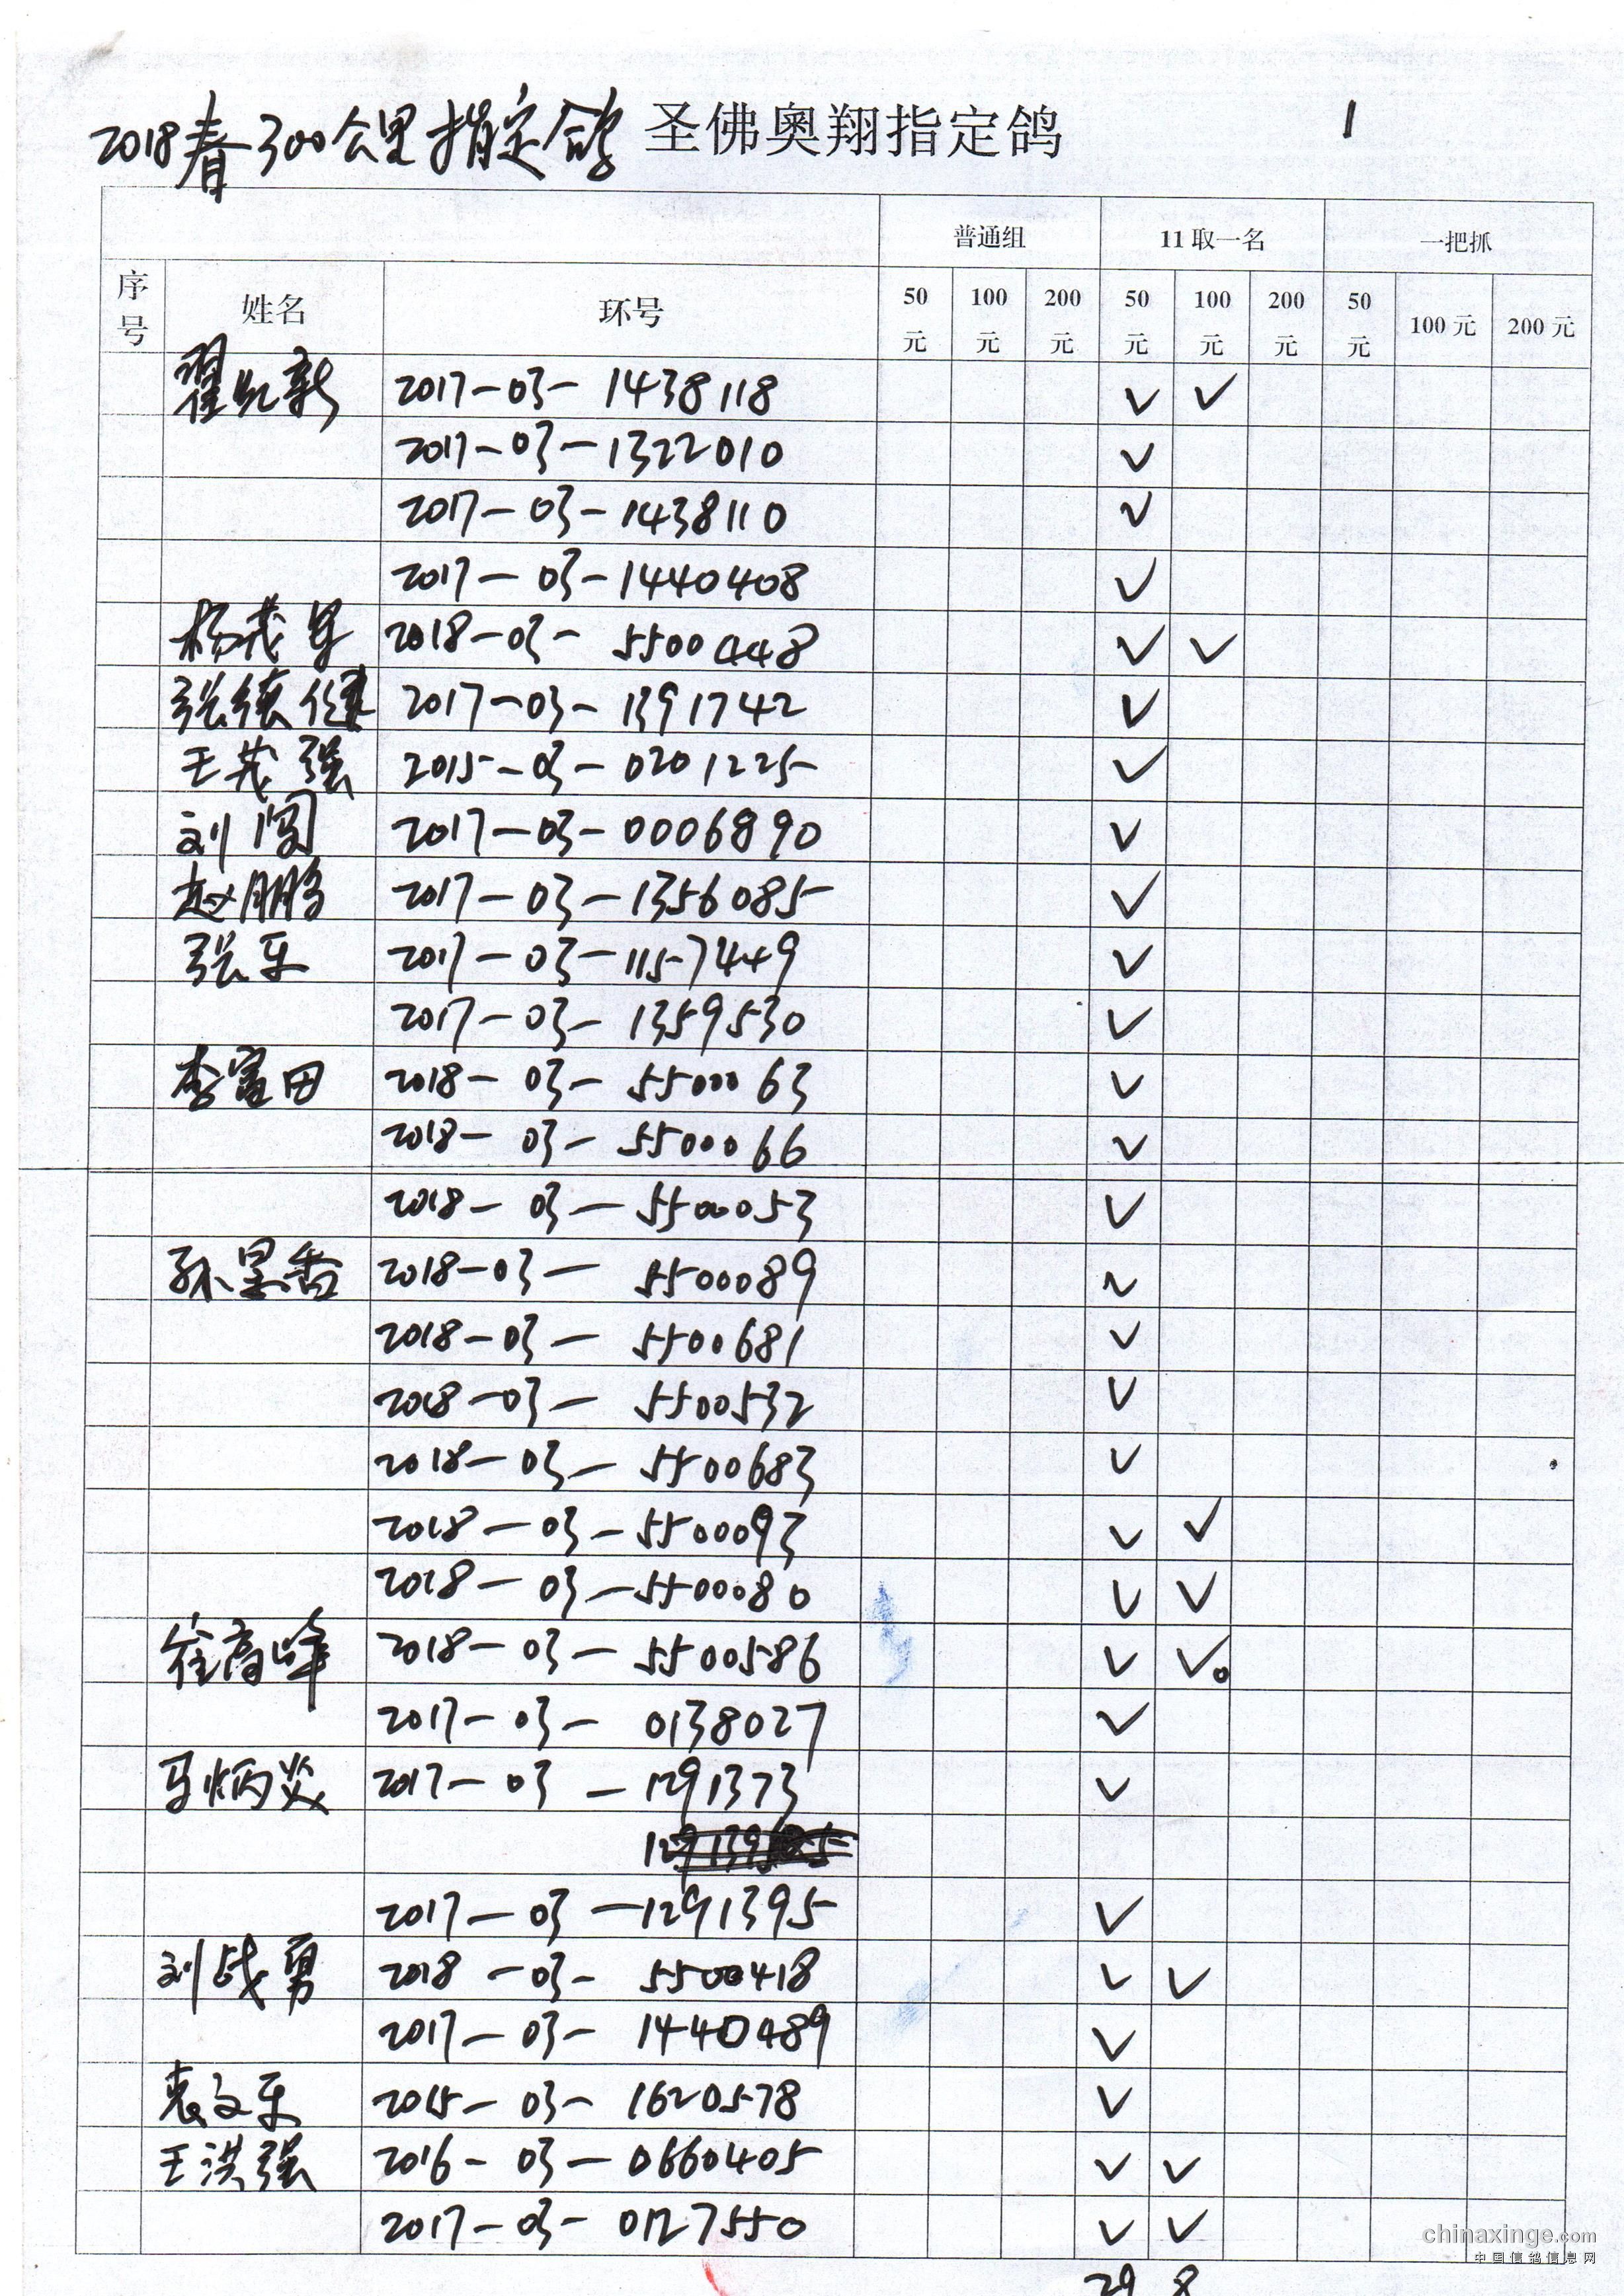 2018春300公里指定鸽 圣佛奥翔指定鸽 1
普通组 11取一名 一把抓
序号 姓名 环号 50元 100元 200元 50元 100元 200元 50元 100元 200元
翟凯新 2017-03-1438118 √ √
2017-03-1322010 √
2017-03-1438110 √
2017-03-1440408 √
杨茂 2018-03-5500448 √ √
张德健 2017-03-1391742 √
王茂强 2015-03-0201225 √
刘闯 2017-03-0006890 √
赵鹏 2017-03-1356085 √
张乐 2017-03-1157449 √
2017-03-1359530 √
李富田 2018-03-5500063 √
2018-03-5500066 √
2018-03-5500053 √
孙景香 2018-03-5500089 √
2018-03-5500681 √
2018-03-5500532 √
2018-03-5500683 √
2018-03-5500093 √ √
2018-03-5500080 √ √
崔高峰 2018-03-5500586 √ √
2017-03-0138027 √
马炳炎 2017-03-1291373 √
2017-03-1291395 √
刘战勇 2018-03-5500418 √ √
2017-03-1440489 √
袁文乐 2015-03-1620578 √
王洪强 2016-03-0660405 √ √
2017-03-0127550 √ √
29 8
chinaxinge.com
中国信鸽信息网